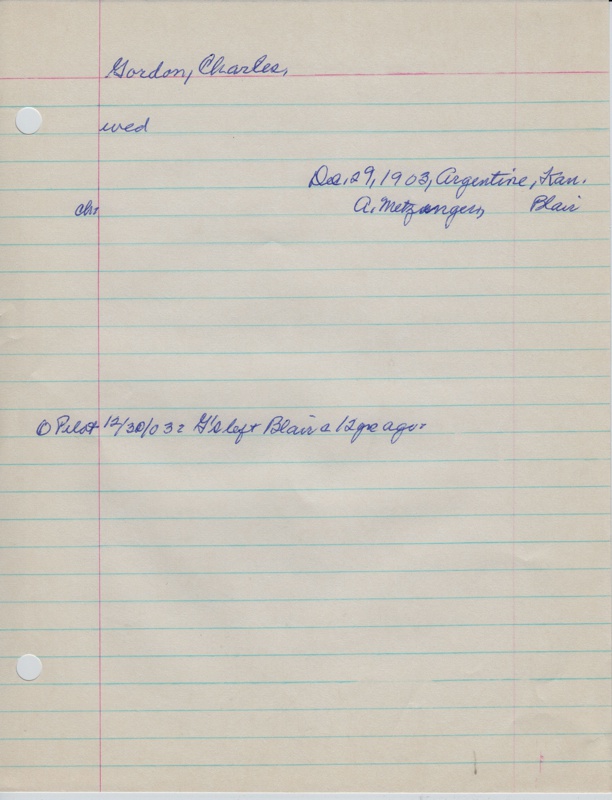 Gordon, Charles,
wed
Dec. 29, 1903, Argentine, Kan.
chr A. Metzanger, Blair
Pilot 12/30/03: G's left Blair c 12 yrs ago.